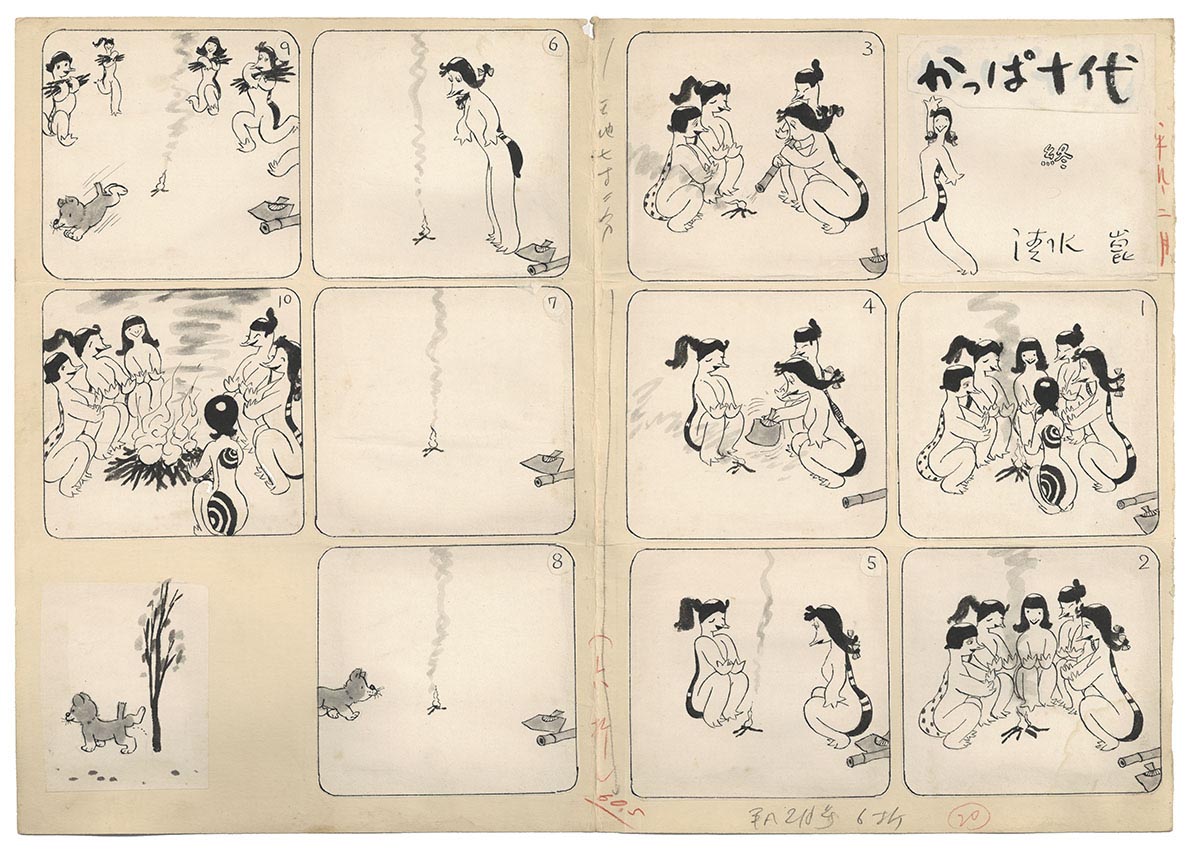 かっぱ十代
終
清水 崑
1
2
3
4
5
6
7
8
9
10
605
20